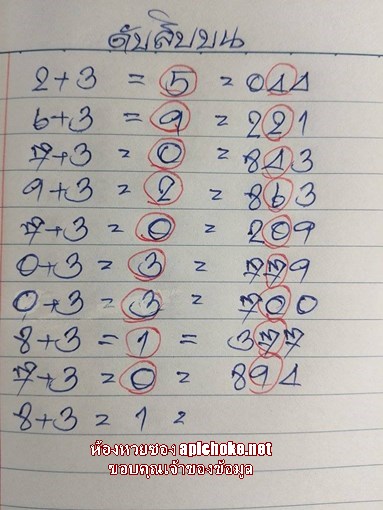 ดับสิบบน
2+3 = 5 = 044
6+3 = 9 = 221
7+3 = 0 = 843
9+3 = 2 = 863
7+3 = 0 = 209
0+3 = 3 = 779
0+3 = 3 = 700
8+3 = 1 = 377
7+3 = 0 = 894
8+3 = 1 =
ห้องหวยซอง apichoke.net
ขอบคุณเจ้าของข้อมูล